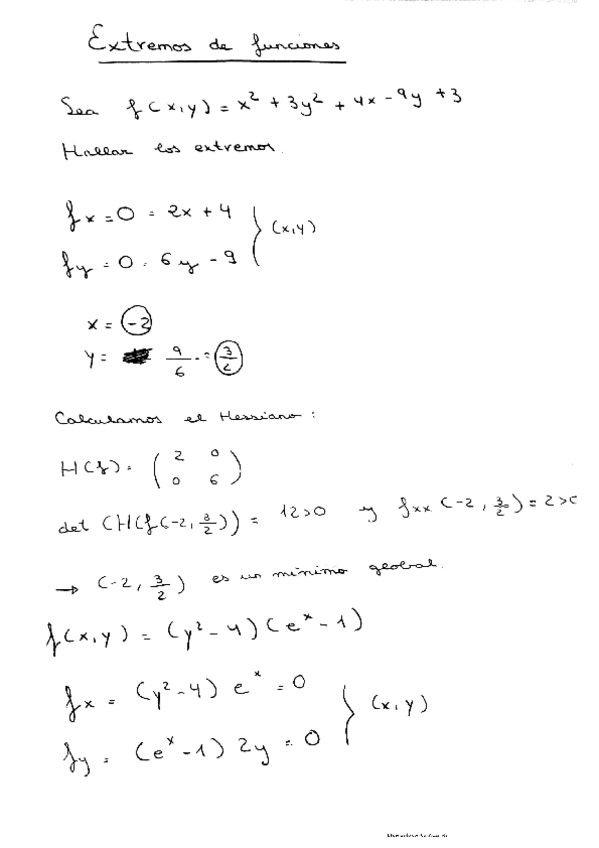 Extremos de funciones
Sea f(x,y) = x² + 3y² + 4x - 9y + 3
Hallar los extremos.
fx = 0 = 2x + 4 } (x,y)
fy = 0 = 6y - 9
x = -2
y = 9/6 = 3/2
Calculamos el Hessiano :
H(f) = ( 2 0
0 6 )
det (H(f(-2, 3/2)) = 12>0 y fxx (-2, 3/2) = 2>0
→ (-2, 3/2) es un mínimo global.
f(x,y) = (y² - 4)(e^x - 1)
fx = (y² - 4) e^x = 0 } (x,y)
fy = (e^x - 1) 2y = 0